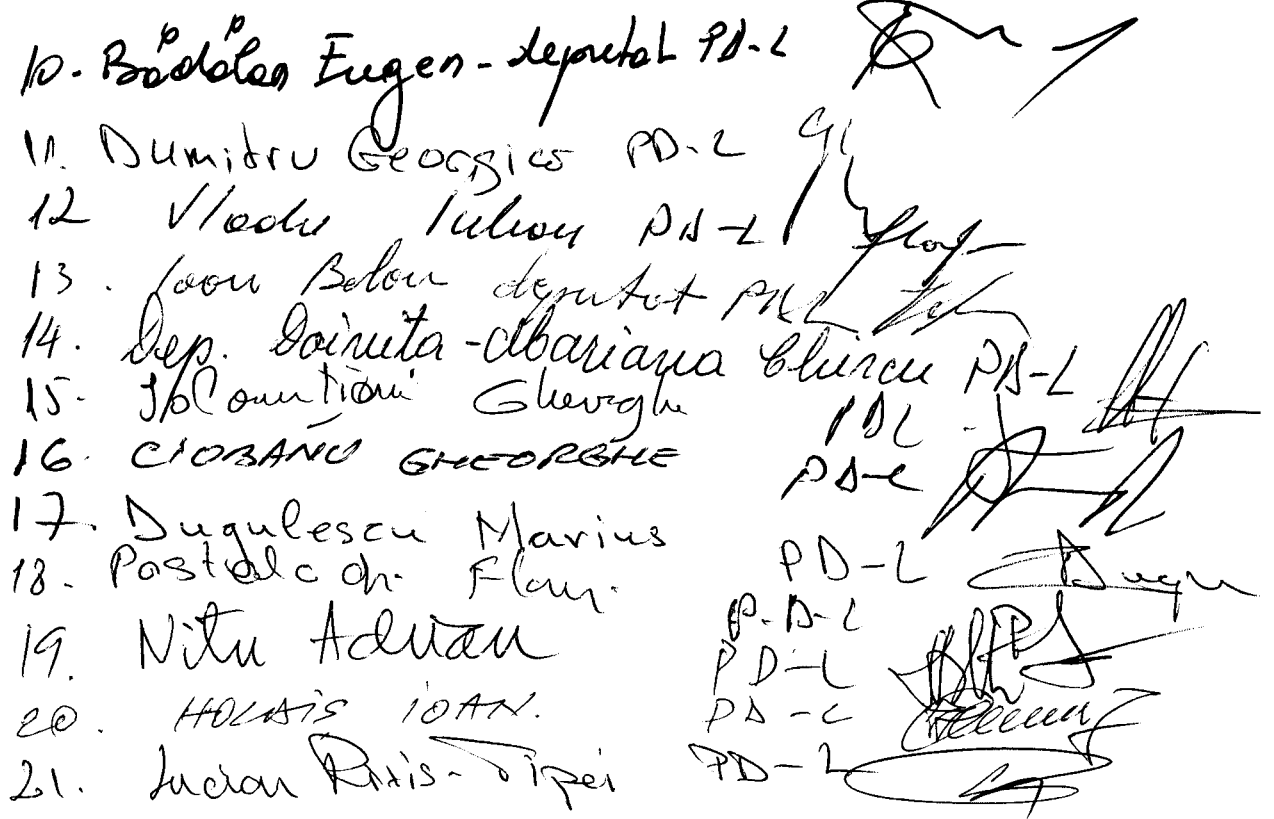 10. Bădălan Eugen - deputat PD-L
11. Dumitru Georgica PD-L
12 Vladu Iulian PD-L
13. Ioan Balan deputat PDL
14. Dep. Doinita-Mariana Chircu PD-L
15. Gheorghe PDL
16. CIOBANU GHEORGHE PD-L
17. Dugulescu Marius PD-L
18. P.D-L
19. Nitu Adrian PD-L
20. HOLDIS IOAN. PD-L
21. Lucian Riviș-Tipei PD-L